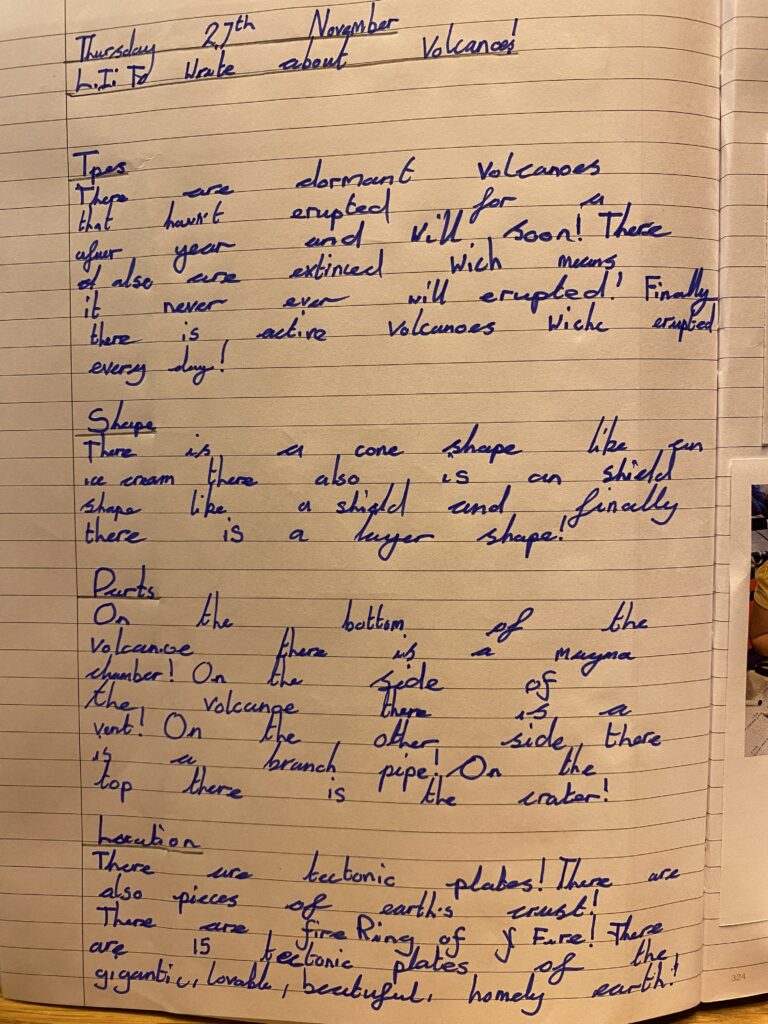 Thursday 27th November
L.I: To Write about Volcanoes!
Tpes
There are dormant volcanoes
that hasn't erupted for a
year and will soon! There
also are extinced wich means
it never ever will erupted! Finally
there is active volcanoes wich erupted
every day!
Shape
There is a cone shape like an
ice cream there also is an shield
shape like a shield and finally
there is a layer shape!
Parts
On the bottom of the
volcanoe there is a magma
chamber! On the side of
the volcanoe there is a
vent! On the other side there
is a branch pipe! On the
top there is the crater!
Location
There are tectonic plates! There are
also pieces of earth's crust!
There are fire Ring of Fure! There
are 15 tectonic plates of the
gigantic, lovable, beautuful, homely earth!
324